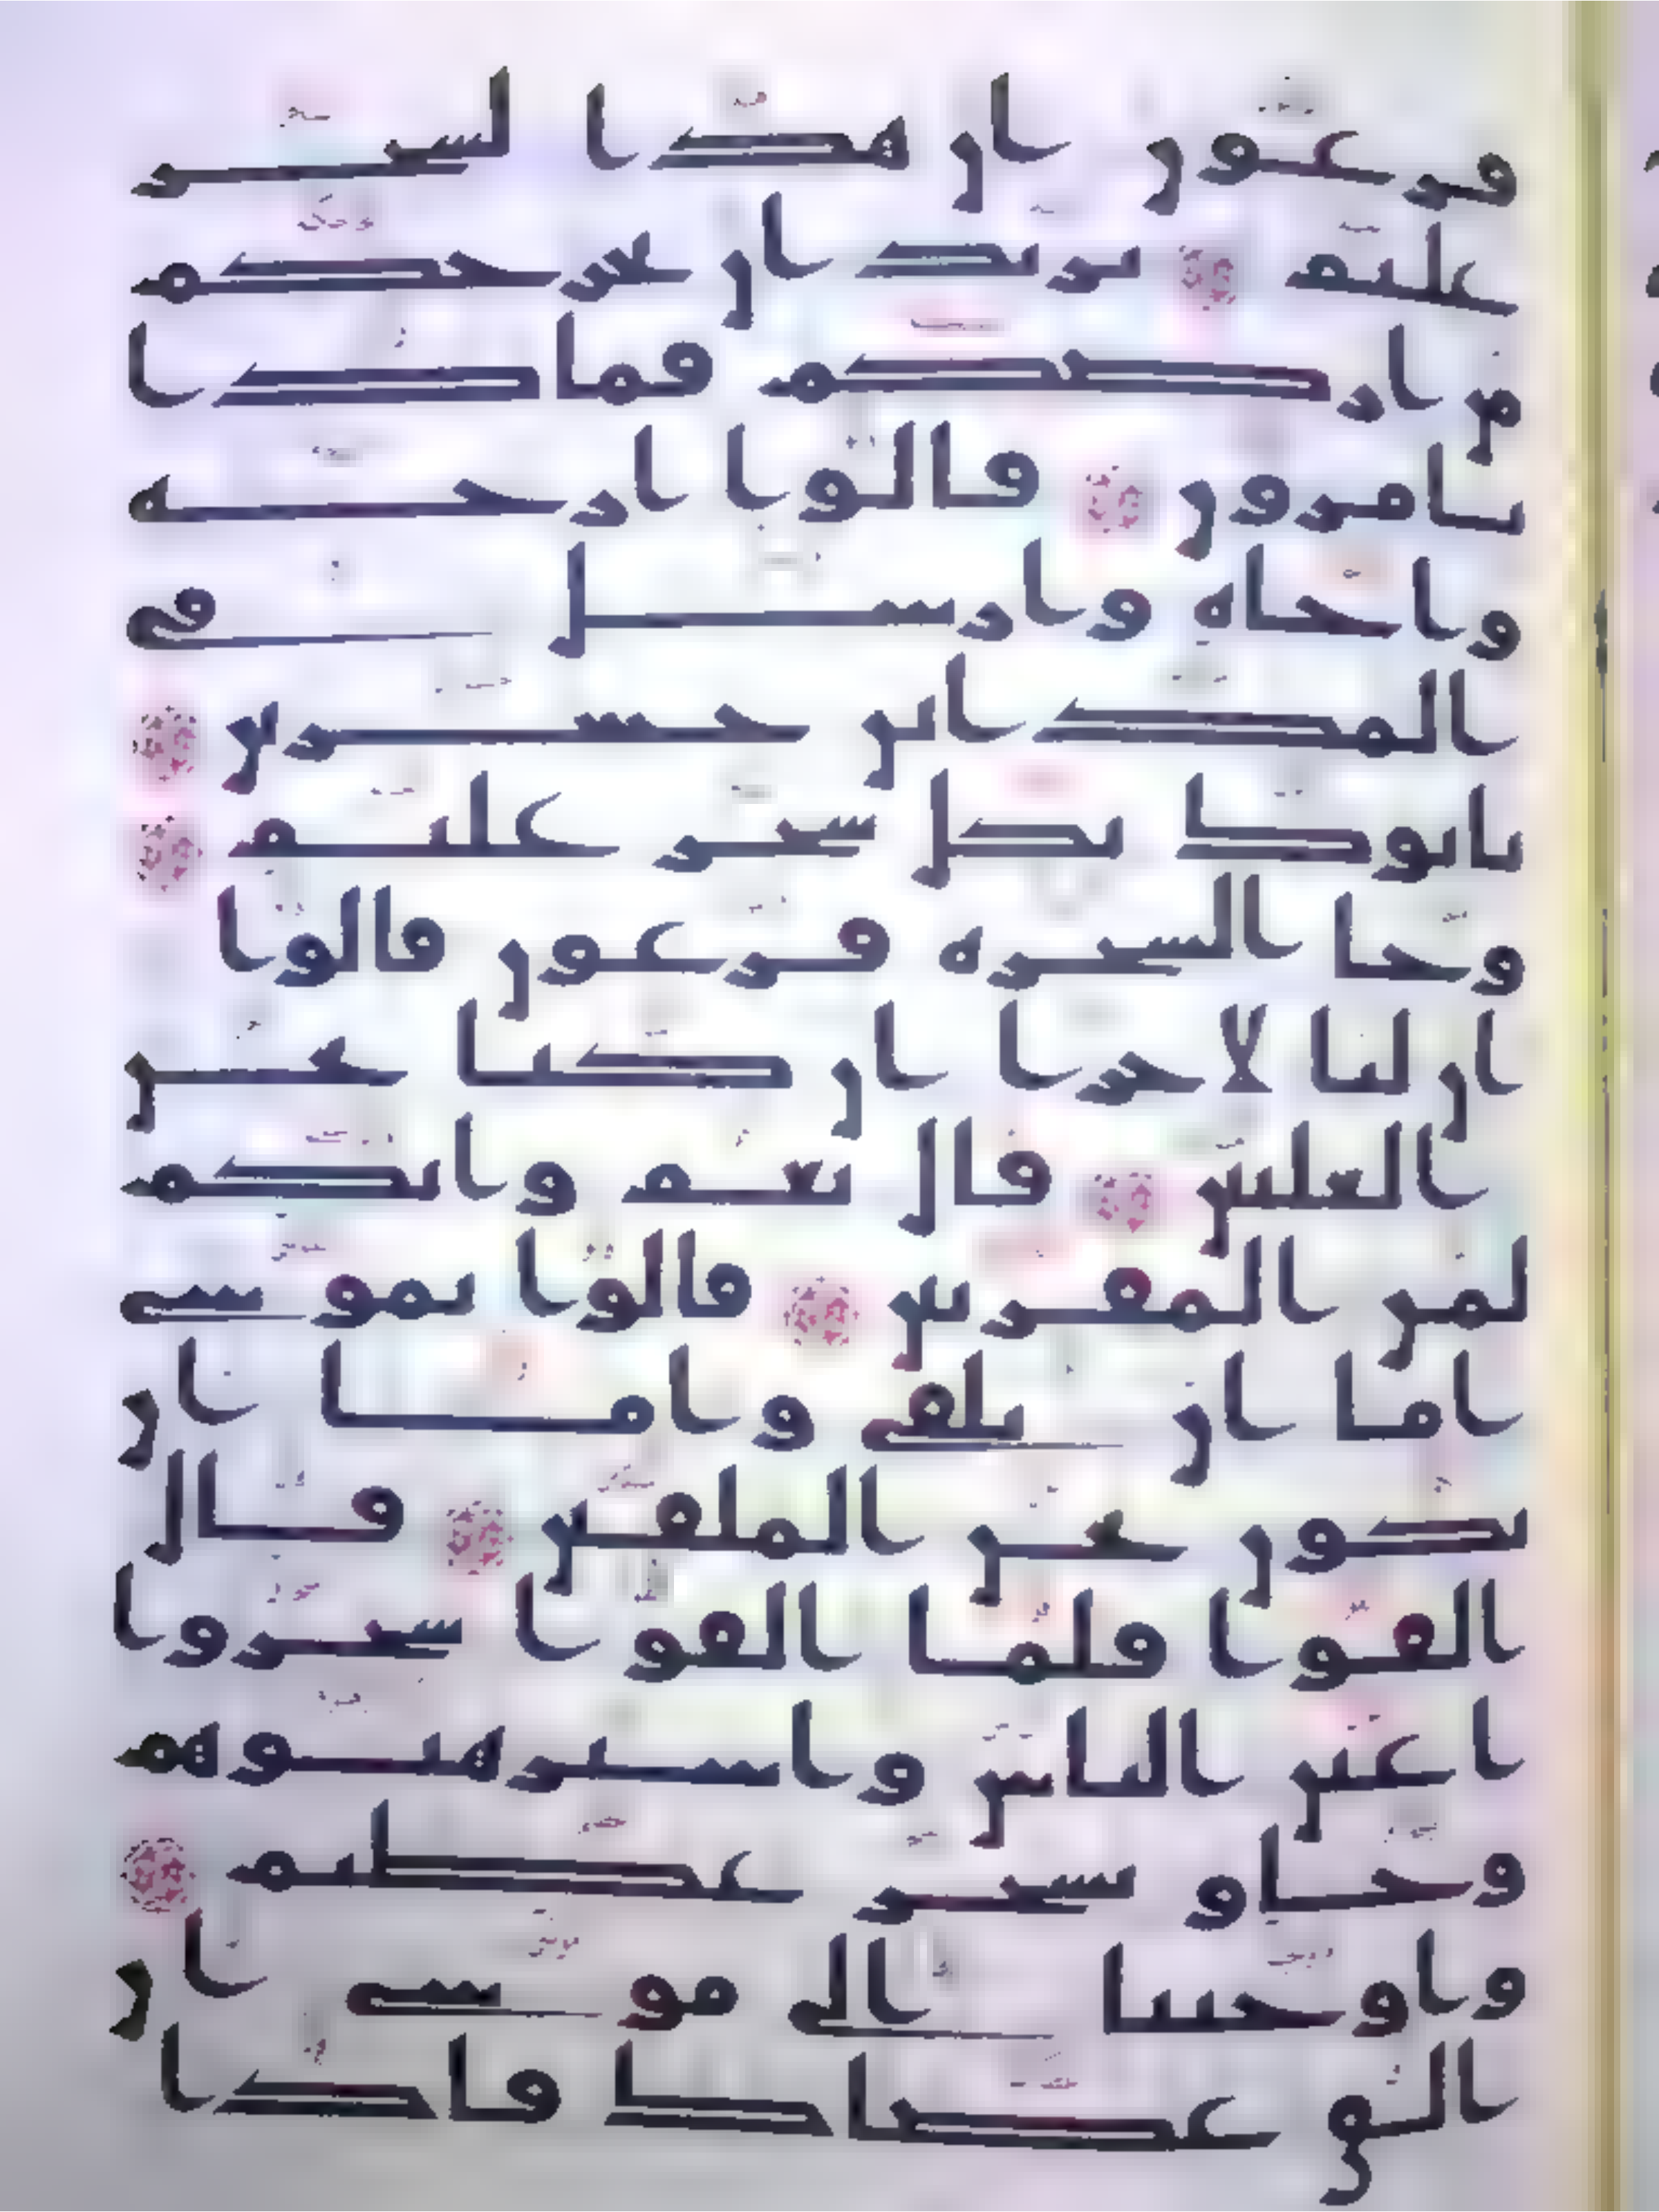 فرعون ان هذا لسحر
عليم يريد ان يخرجكم
من ارضكم فماذا
تامرون قالوا ارجه
واخاه وارسل في
المداين حشرين
ياتوك بكل سحر عليم
وجا السحرة فرعون قالوا
ان لنا لاجرا ان كنا نحن
الغلبين قال نعم وانكم
لمن المقربين قالوا يموسى
اما ان تلقي واما ان
نكون نحن الملقين قال
القوا فلما القوا سحروا
اعين الناس واسترهبوهم
وجاو بسحر عظيم
واوحينا الى موسى ان
الق عصاك فاذا